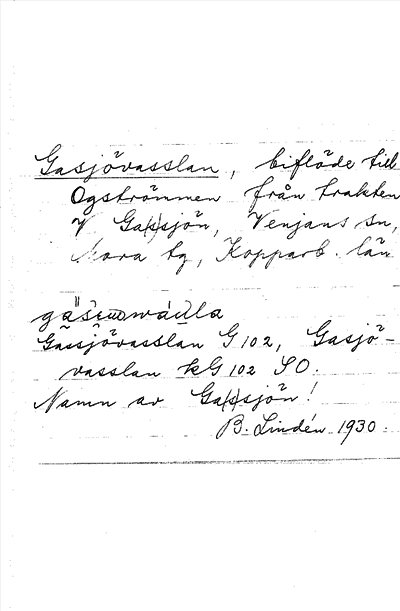 Gasjövasslan, biflöde till
Ogströmmen från trakten
V Ga(s)sjön, Venjans sn,
Mora tg, Kopparb. län
Gässjövasslan G 102, Gasjö-
vasslan kG 102 SO.
Namn av Ga(s)sjön!
B. Lindén 1930.